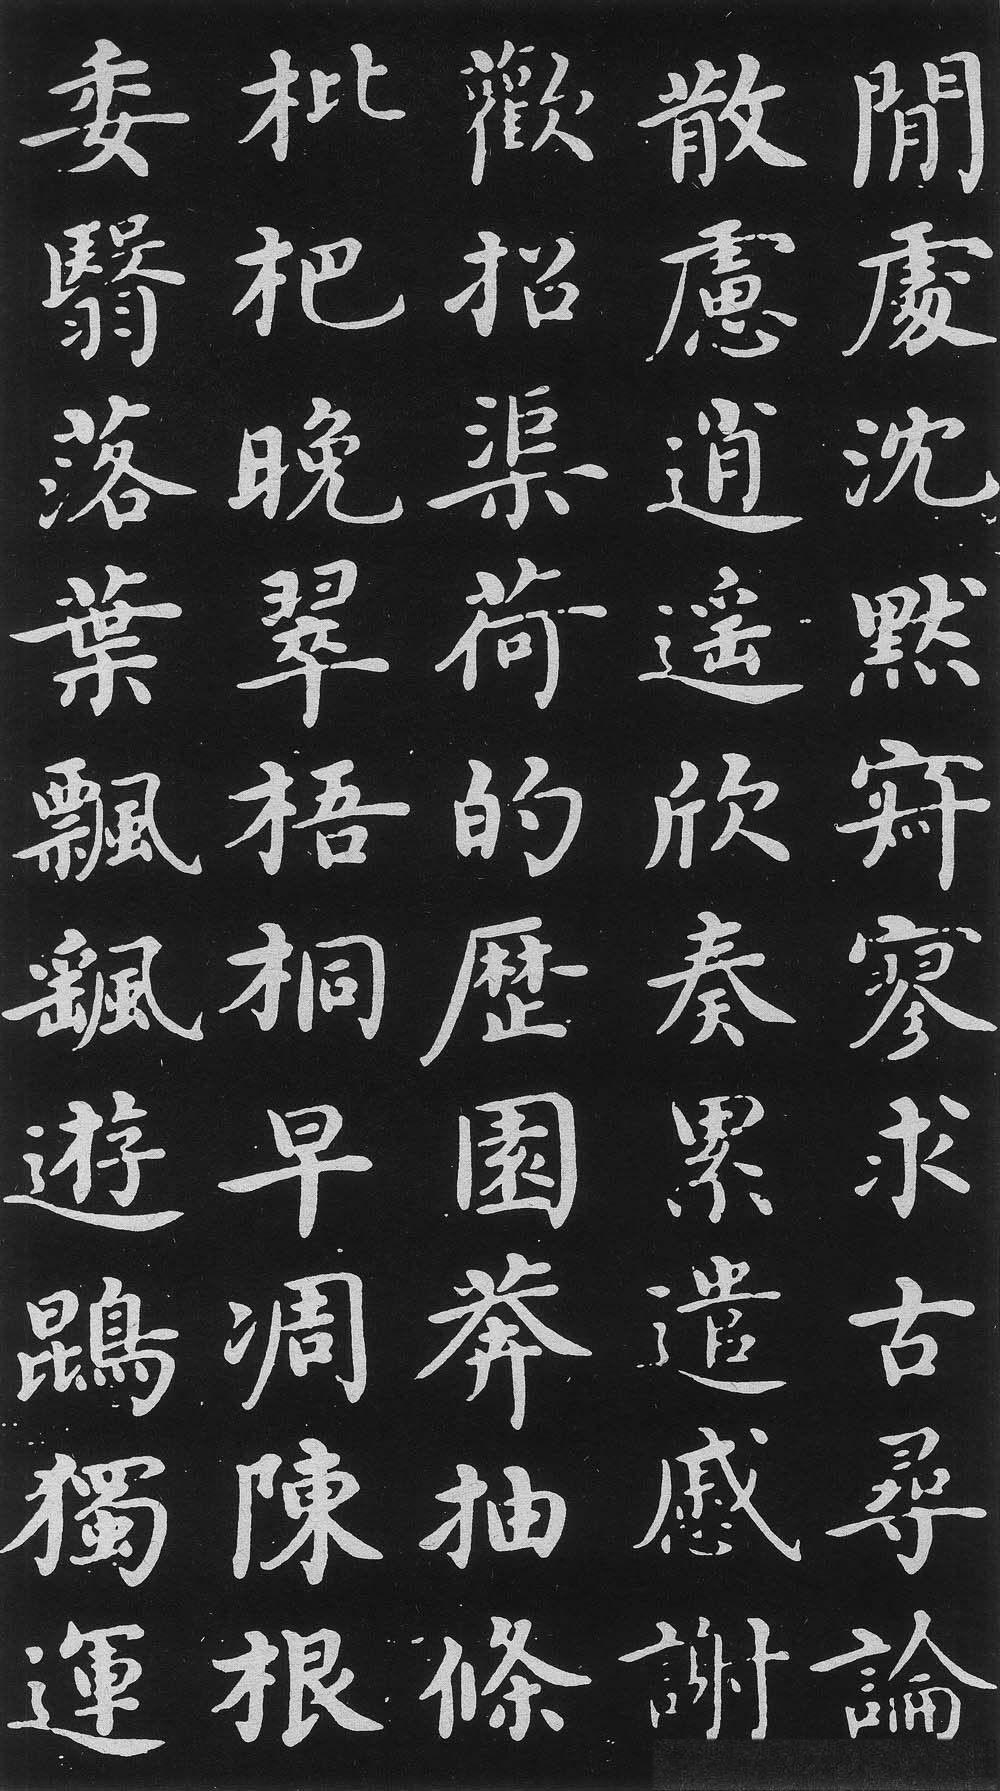 閒處沈默寂寥求古尋論
散慮逍遥欣奏累遣慼謝
歡招渠荷的歷園莽抽條
枇杷晚翠梧桐早凋陳根
委翳落葉飄颻遊鵾獨運